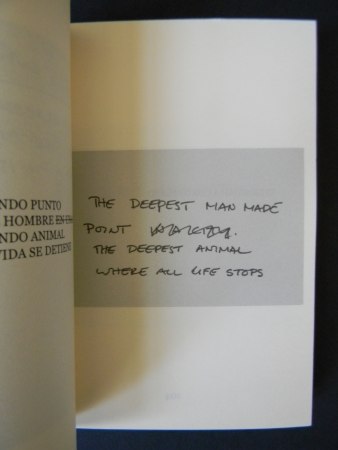 NDO PUNTO
HOMBRE EN UN
NDO ANIMAL
VIDA SE DETIENE
THE DEEPEST MAN MADE
POINT
THE DEEPEST ANIMAL
WHERE ALL LIFE STOPS